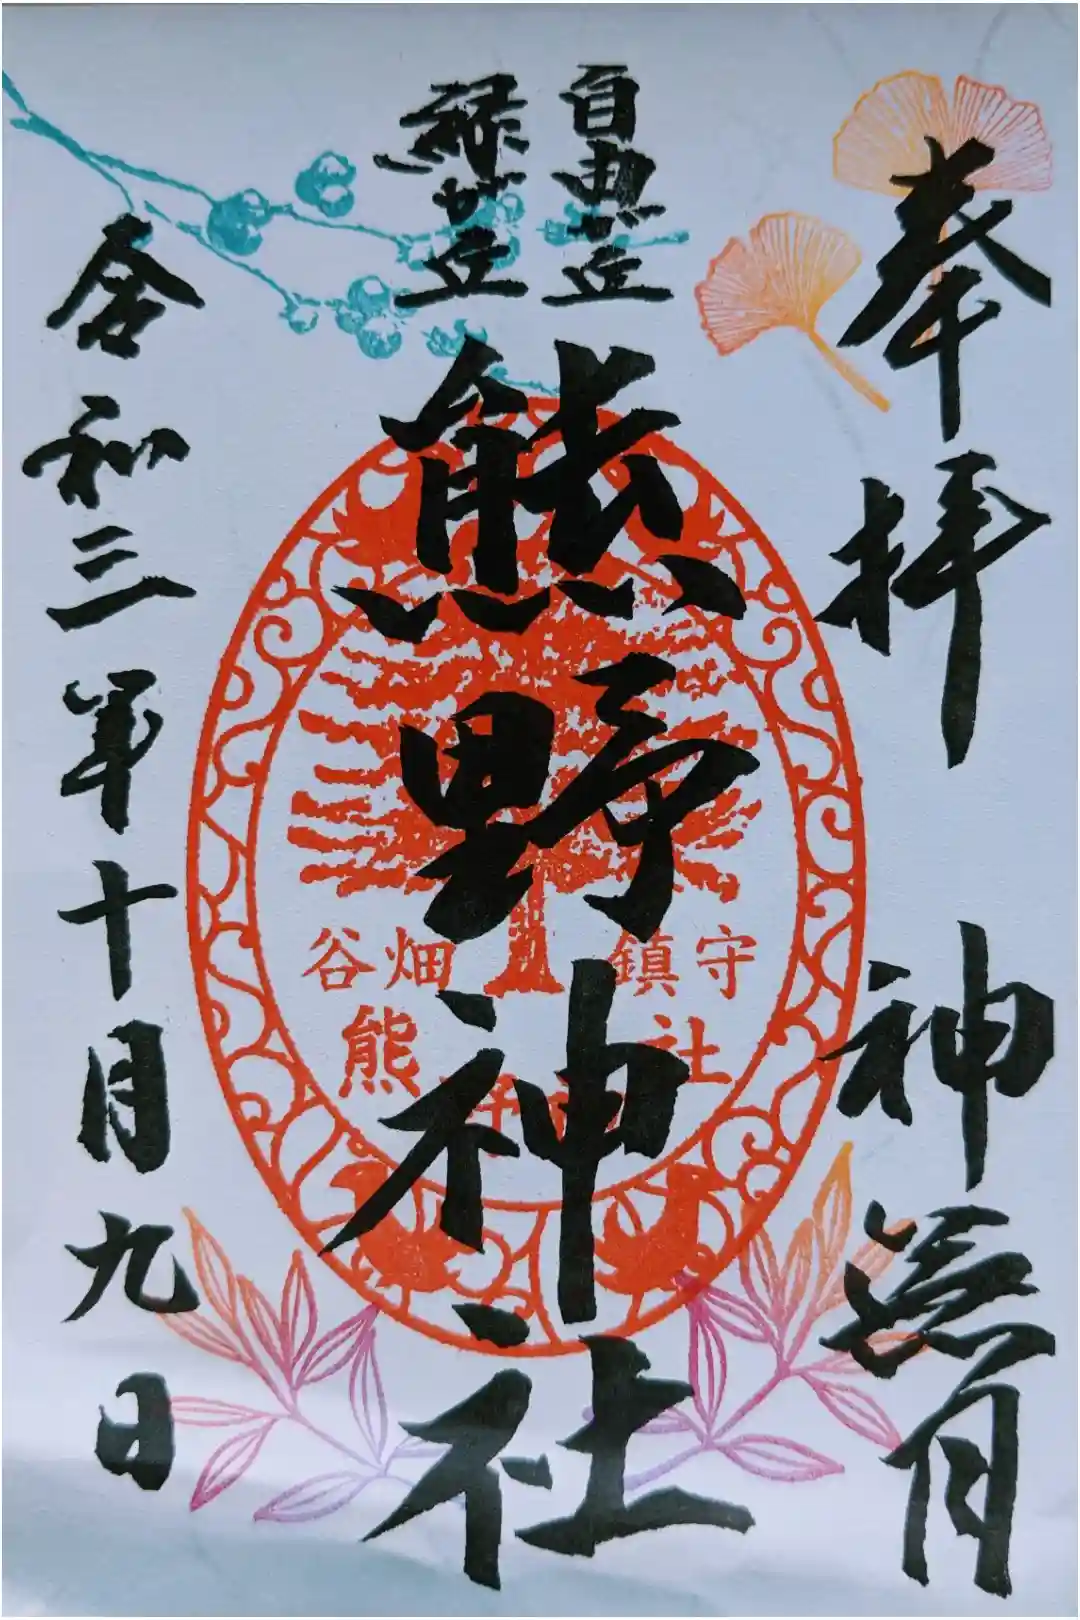 奉拝　神無月
自由が丘
緑が丘
熊野神社
令和三年十月九日
谷畑鎮守
熊野神社